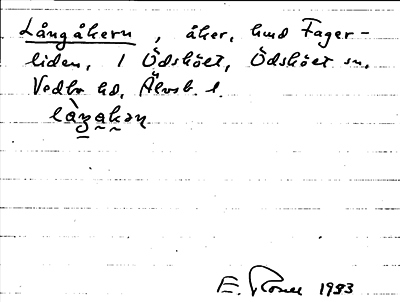 Långåkern, åker, hmd Fager-
liden, 1 Ödsköet, Ödsköet sn,
Vedbo hd, Älvsb. l.
làŋakən
E. 1983